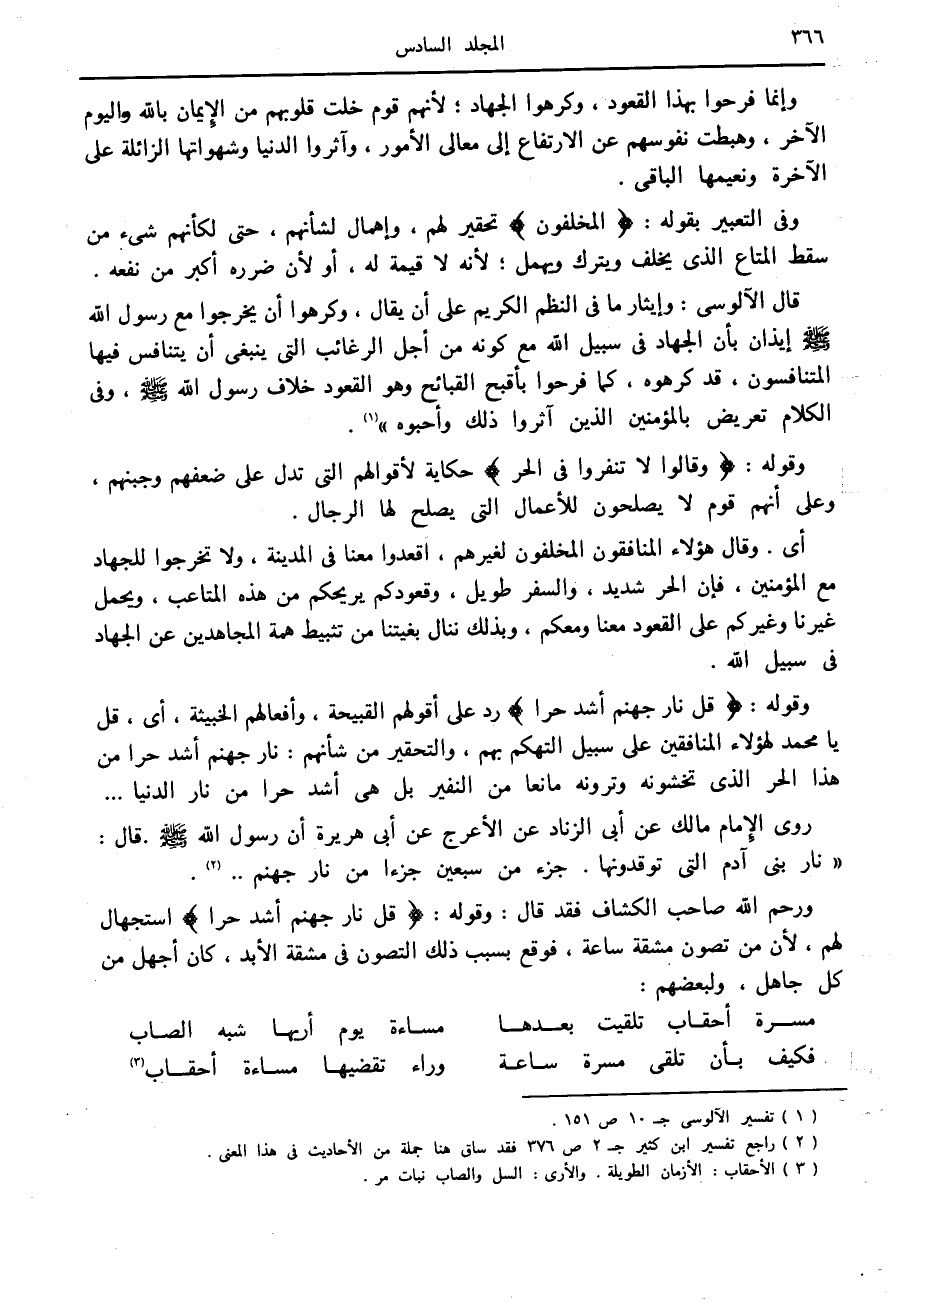 ٣٦٦
المجلد السادس
وإنما فرحوا بهذا القعود ، وكرهوا الجهاد ؛ لأنهم قوم خلت قلوبهم من الإيمان بالله واليوم
الآخر ، وهبطت نفوسهم عن الارتفاع إلى معالى الأمور ، وآثروا الدنيا وشهواتها الزائلة على
الآخرة ونعيمها الباقى .
وفى التعبير بقوله : ﴿ المخلفون ﴾ تحقير لهم ، وإهمال لشأنهم ، حتى لكأنهم شىء من
سقط المتاع الذى يخلف ويترك ويهمل ؛ لأنه لا قيمة له ، أو لأن ضرره أكبر من نفعه .
قال الآلوسى : وإيثار ما فى النظم الكريم على أن يقال ، وكرهوا أن يخرجوا مع رسول الله
ﷺ إيذان بأن الجهاد فى سبيل الله مع كونه من أجل الرغائب التى ينبغى أن يتنافس فيها
المتنافسون ، قد كرهوه ، كما فرحوا بأقبح القبائح وهو القعود خلاف رسول الله ﷺ ، وفى
الكلام تعريض بالمؤمنين الذين آثروا ذلك وأحبوه »(١) .
وقوله : ﴿ وقالوا لا تنفروا فى الحر ﴾ حكاية لأقوالهم التى تدل على ضعفهم وجبنهم ،
وعلى أنهم قوم لا يصلحون للأعمال التى يصلح لها الرجال .
أى . وقال هؤلاء المنافقون المخلفون لغيرهم ، اقعدوا معنا فى المدينة ، ولا تخرجوا للجهاد
مع المؤمنين ، فإن الحر شديد ، والسفر طويل ، وقعودكم يريحكم من هذه المتاعب ، ويحمل
غيرنا وغيركم على القعود معنا ومعكم ، وبذلك ننال بغيتنا من تثبيط همة المجاهدين عن الجهاد
فى سبيل الله .
وقوله : ﴿ قل نار جهنم أشد حرا ﴾ رد على أقولهم القبيحة ، وأفعالهم الخبيثة ، أى ، قل
يا محمد لهؤلاء المنافقين على سبيل التهكم بهم ، والتحقير من شأنهم : نار جهنم أشد حرا من
هذا الحر الذى تخشونه وترونه مانعا من النفير بل هى أشد حرا من نار الدنيا ...
روى الإمام مالك عن أبى الزناد عن الأعرج عن أبى هريرة أن رسول الله ﷺ .قال :
« نار بنى آدم التى توقدونها . جزء من سبعين جزءا من نار جهنم .. (٢) .
ورحم الله صاحب الكشاف فقد قال : وقوله : ﴿ قل نار جهنم أشد حرا ﴾ استجهال
لهم ، لأن من تصون مشقة ساعة ، فوقع بسبب ذلك التصون فى مشقة الأبد ، كان أجهل من
كل جاهل ، ولبعضهم :
مســرة أحقـاب تلقيت بعـدهـا مسـاءة يوم أريهـا شبه الصاب
فكيف بـأن تلقى مسرة سـاعـة وراء تقضيهـا مسـاءة أحقـاب(٣)
( ١ ) تفسير الآلوسى جـ ١٠ ص ١٥١ .
( ٢ ) راجع تفسير ابن كثير جـ ٢ ص ٣٧٦ فقد ساق هنا جملة من الأحاديث فى هذا المعنى .
( ٣ ) الأحقاب : الأزمان الطويلة . والأرى : السل والصاب نبات مر .